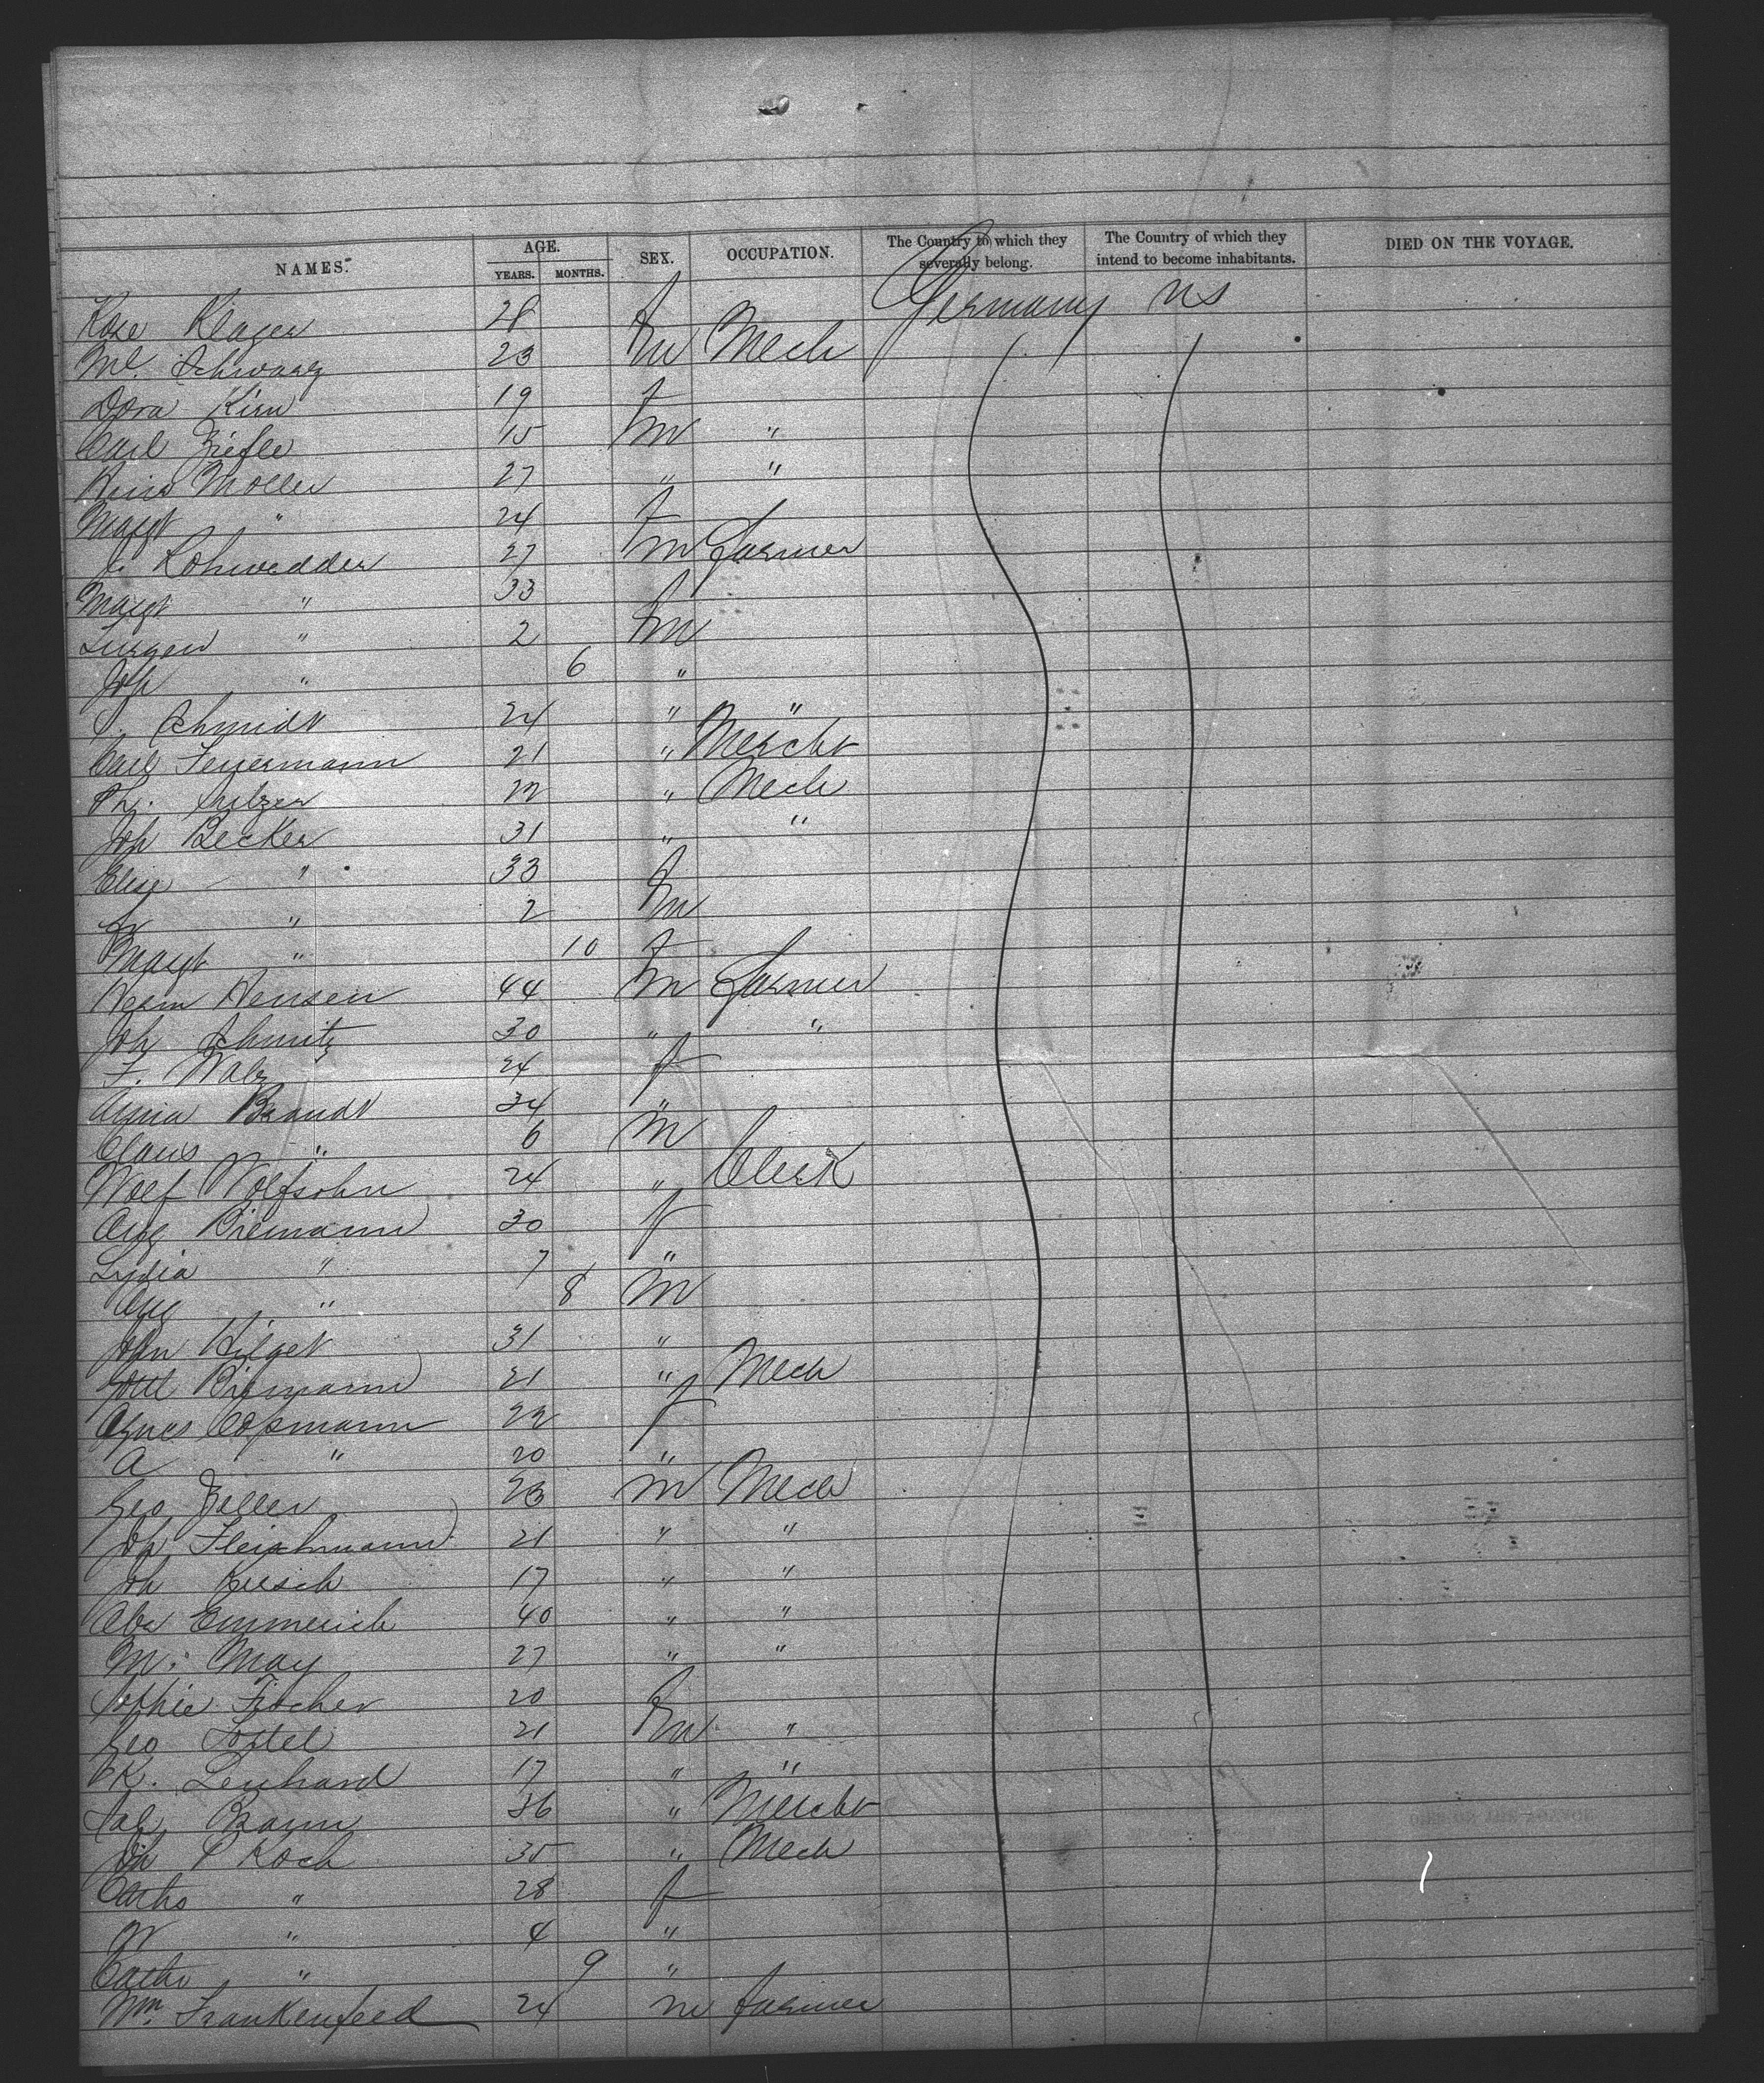 NAMES. AGE. YEARS. MONTHS. SEX. OCCUPATION. The Country to which they severally belong. The Country of which they intend to become inhabitants. DIED ON THE VOYAGE.
Rose Klager 28 f Germany US
Ml. Schwarz 23 m Mech
Dora Kirn 19 f
Carl Ziefle 15 m "
Moller 27 " "
Margt " 24 f
J. Rohwedder 27 m farmer
Margt " 33 f
Jurgen " 2 m
Joh " 6 "
J. Schmidt 24 " "
Carl Feyermann 21 " Mercht
Ph. Sulzer 22 " Mech
Joh Becker 31 " "
Elise " 33 f
" 2 m
Margt " 10 f
Herm Hensen 44 m Farmer
Joh Schmitz 30 " "
F. Walz 24 f
Anna Brandt 34 "
Claus " 6 m
Wolf Wolfsohn 24 " Clerk
Aug Biemann 30 f
Lydia " 7 "
Aug " 8 m
John Hilget 31 "
Gottl Biemann 21 " Mech
Agnes Copmann 22 f
A " 20 "
Geo Zeller 23 m Mech
Joh Fleischmann 21 " "
Joh 17 " "
Emmerich 40 " "
M. May 27 " "
Sophie Fischer 20 f
Geo 21 m "
Lenhard 17 " "
Sal. 36 " Mercht
Joh P Koch 35 " Mech
Catha " 28 f
W " 4 "
Catha " 9 "
Wm. Frankenfeed 24 m farmer